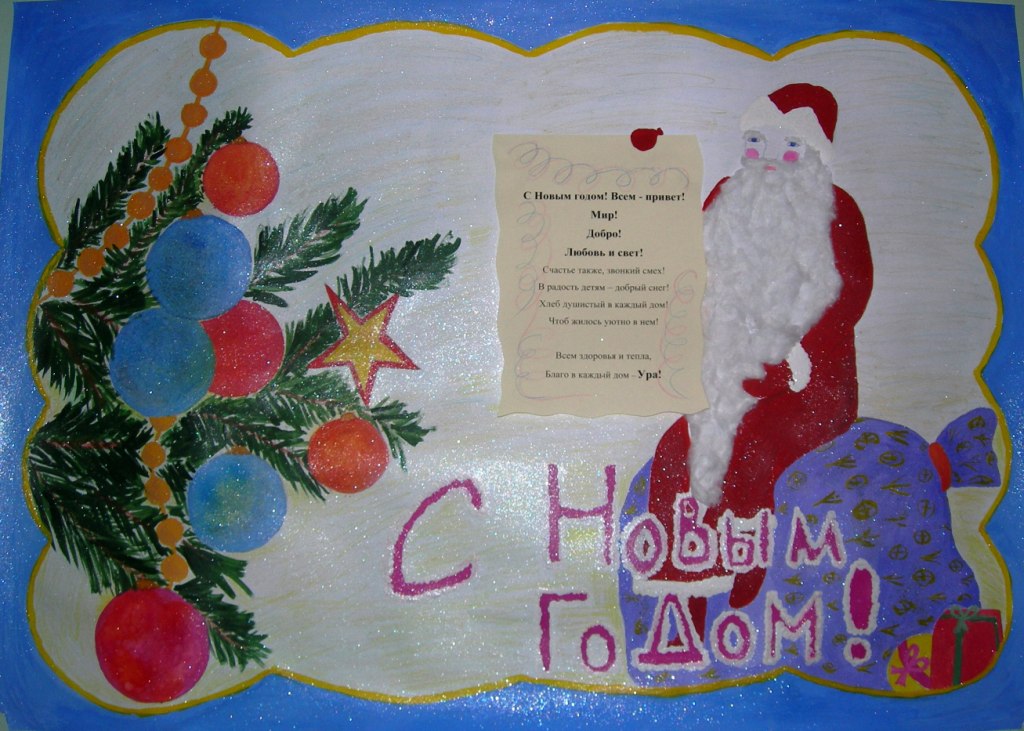 С Новым годом! Всем - привет!
Мир!
Добро!
Любовь и свет!
Счастье также, звонкий смех!
В радость детям – добрый снег!
Хлеб душистый в каждый дом!
Чтоб жилось уютно в нем!
Всем здоровья и тепла,
Благо в каждый дом – Ура!
С Новым
годом!